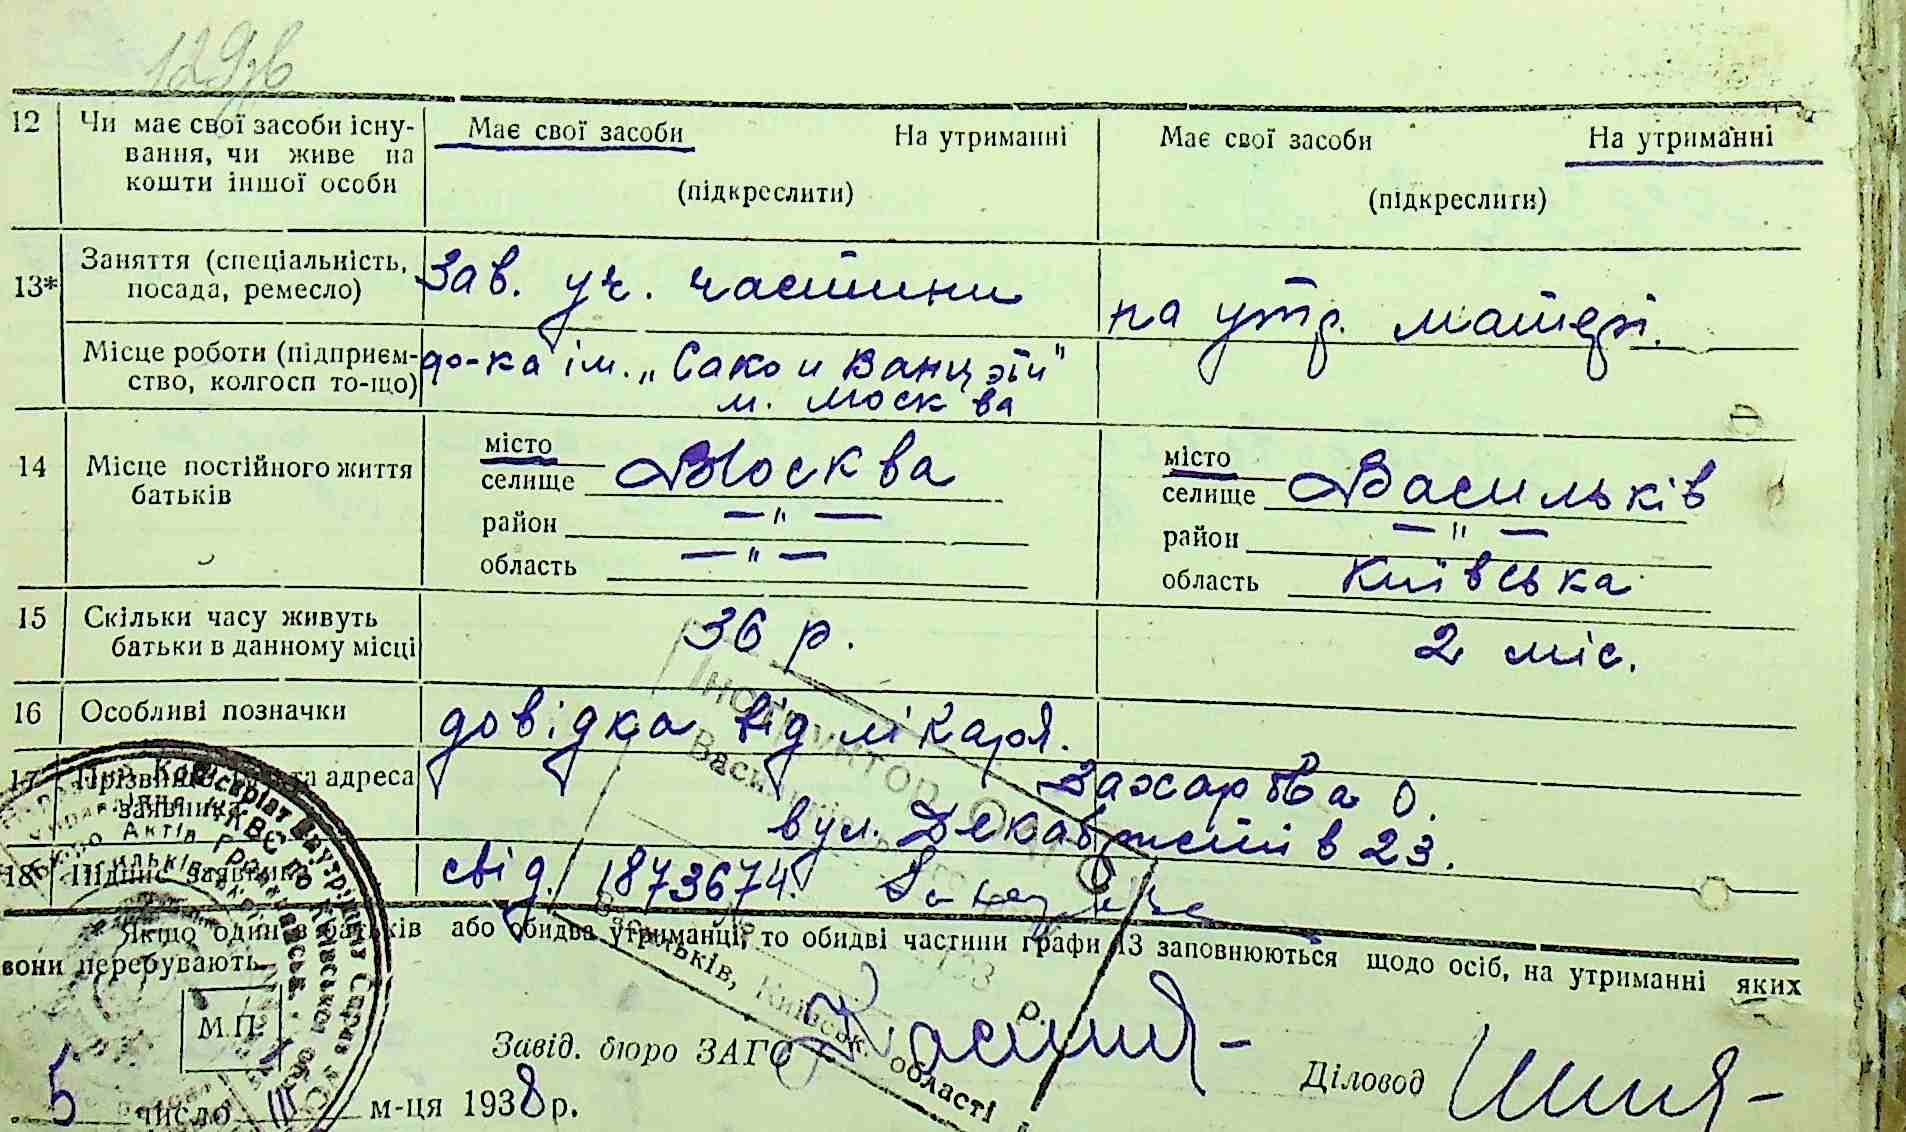 129зв
12 Чи має свої засоби існу- Має свої засоби На утриманні Має свої засоби На утриманні
вання, чи живе на
кошти іншої особи (підкреслити) (підкреслити)
13* Заняття (спеціальність, посада, ремесло) Зав. уч. частини на утр. матері.
Місце роботи (підприєм- до-ка ім. „Сако и Ванцэти"
ство, колгосп то-що) м. Москва
14 Місце постійного життя батьків
місто
селище Москва
район — " —
область — " —
місто
селище Васильків
район — " —
область Київська
15 Скільки часу живуть
батьки в данному місці 36 р. 2 міс.
16 Особливі позначки довідка від лікаря.
17 Прізвище та адреса
заявника Захарова О.
вул. Декабристів 23.
18 Підпис заявника свід. 1873674.
Якщо один з батьків або обидва утриманці, то обидві частини графи 13 заповнюються щодо осіб, на утриманні яких
вони перебувають.
М.П.
Завід. бюро ЗАГС
Діловод
5 число III м-ця 1938 р.
Інспектор
Васильків, Київськ. області